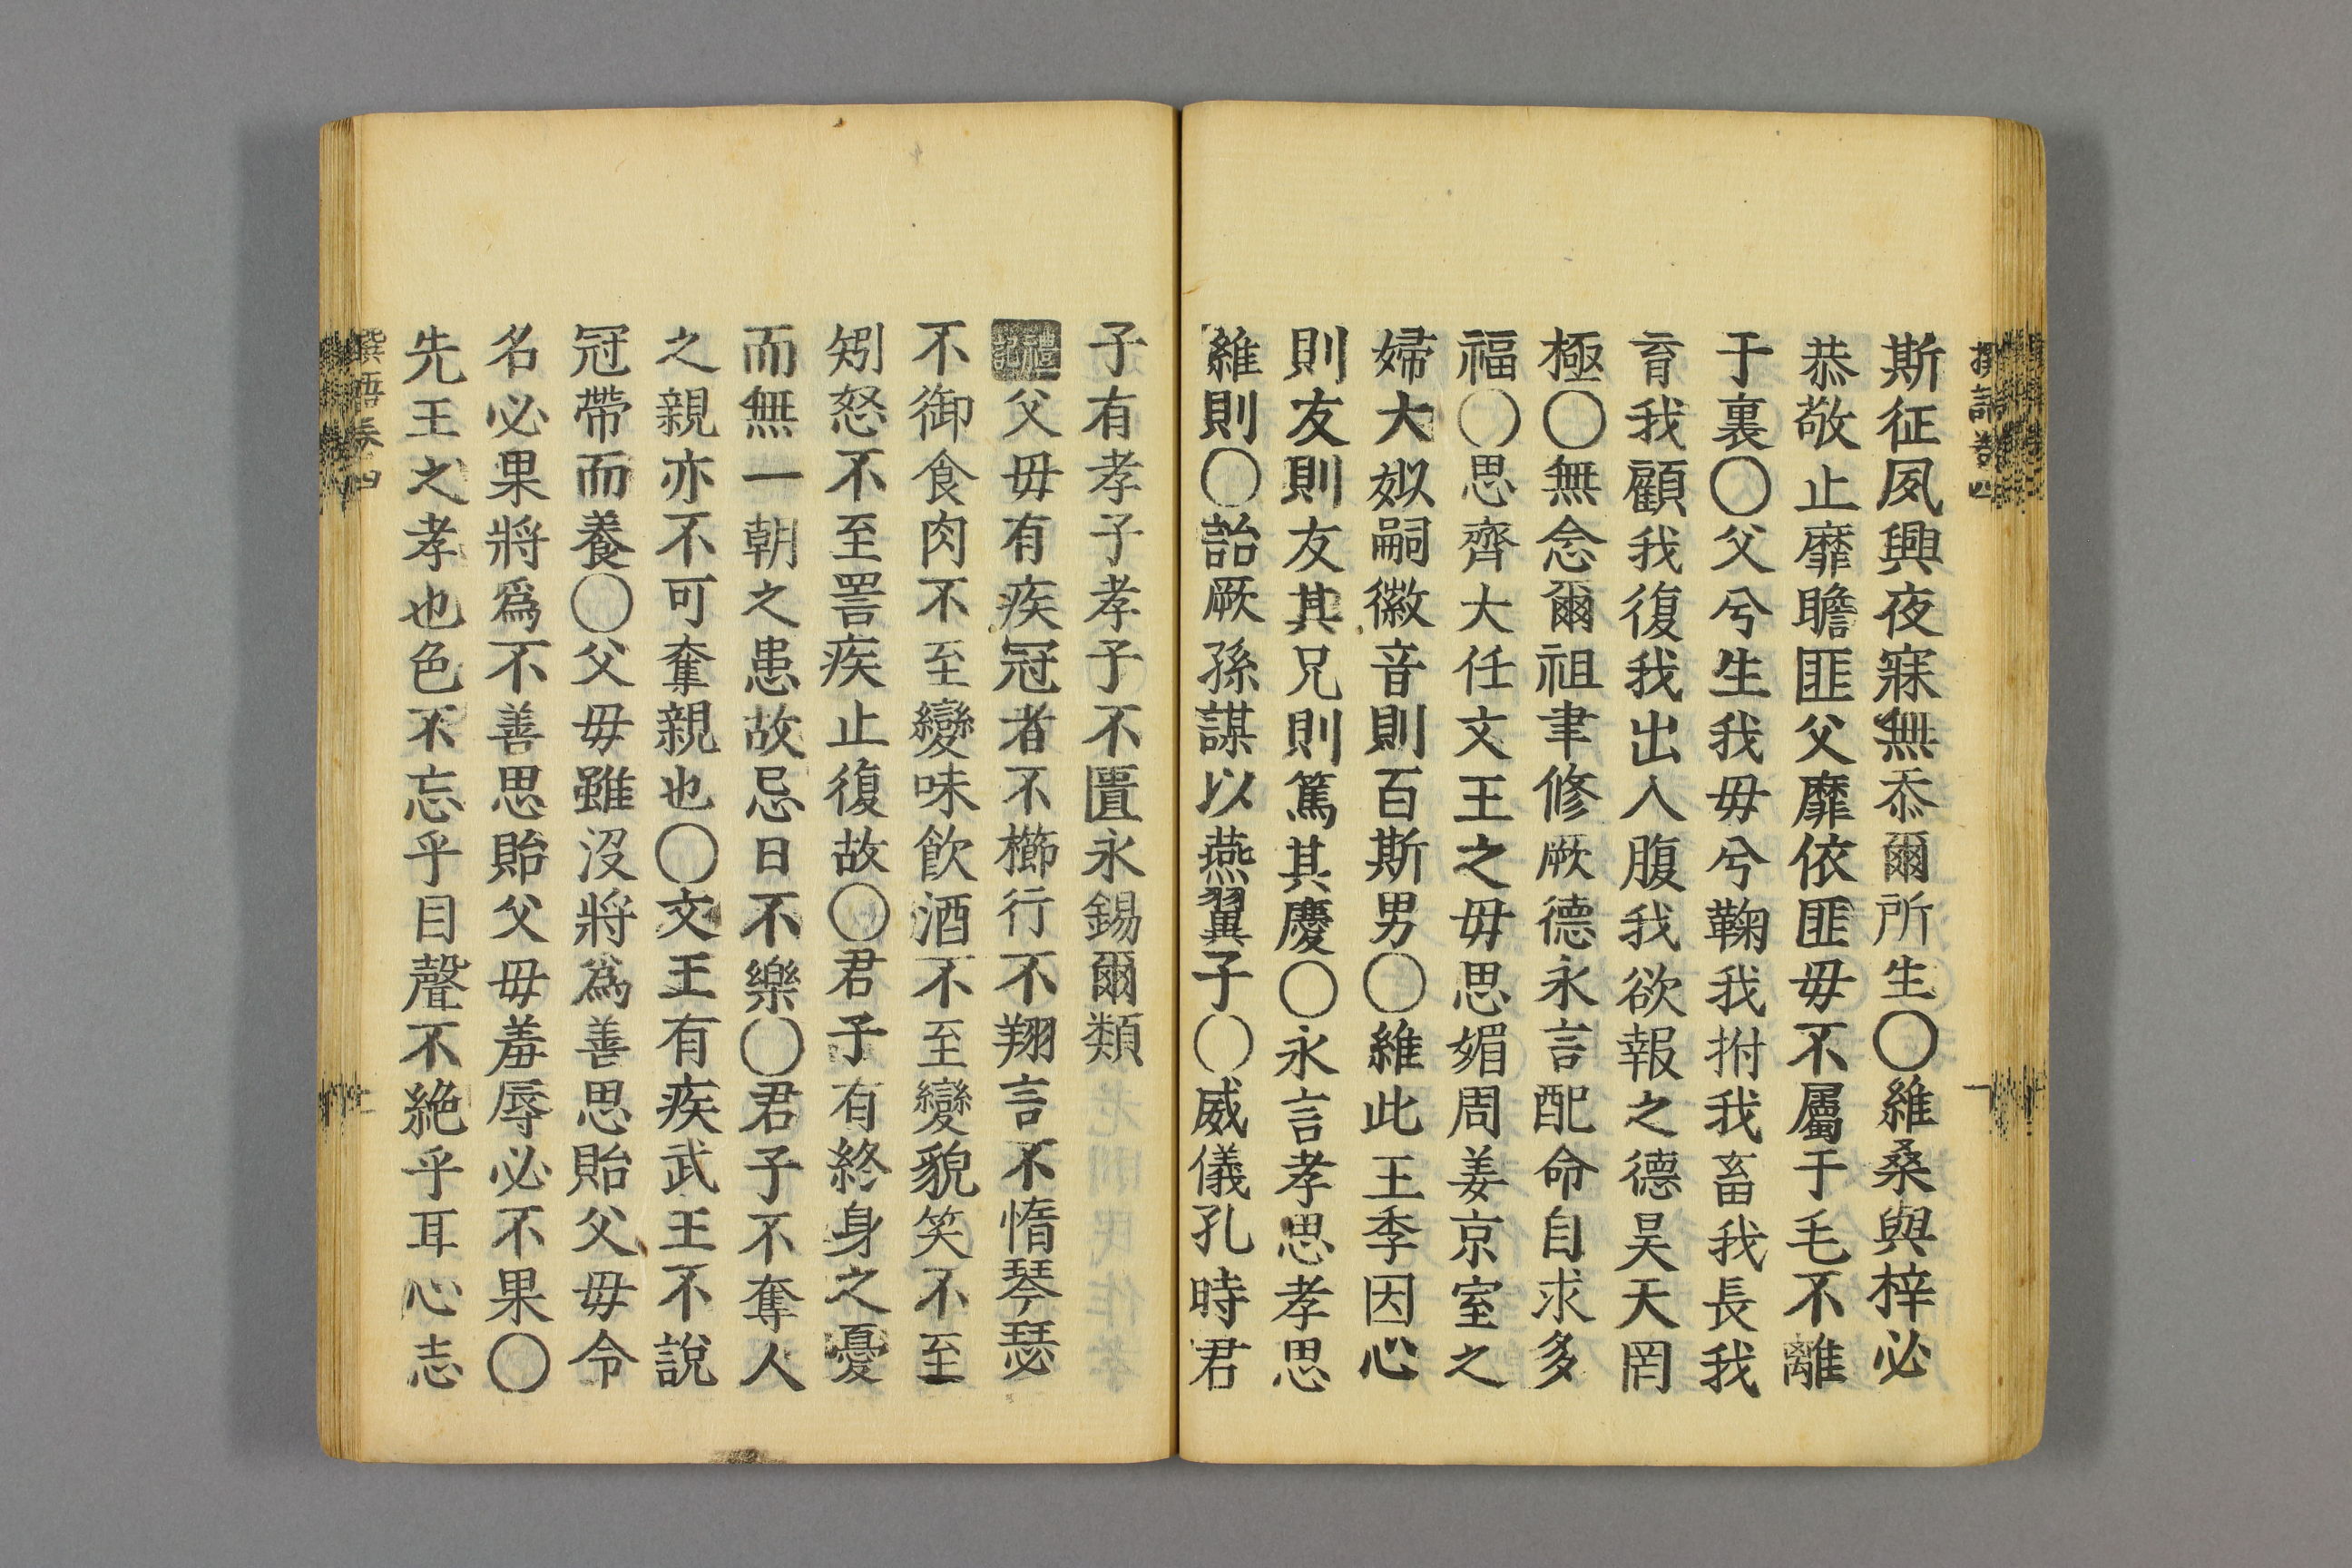 斯征夙興夜寐無忝爾所生〇維桑與梓必
恭敬止靡瞻匪父靡依匪毋不屬于毛不離
于裏〇父兮生我毋兮鞠我拊我畜我長我
育我顧我復我出入腹我欲報之德昊天罔
極〇無念爾祖聿修厥德永言配命自求多
福〇思齊大任文王之毋思媚周姜京室之
婦大姒嗣徽音則百斯男〇維此王季因心
則友則友其兄則篤其慶〇永言孝思孝思
維則〇詒厥孫謀以燕翼子〇威儀孔時君
子有孝子孝子不匱永錫爾類
禮記父毋有疾冠者不櫛行不翔言不惰琴瑟
不御食肉不至變味飲酒不至變貌笑不至
矧怒不至詈疾止復故〇君子有終身之憂
而無一朝之患故忌日不樂〇君子不奪人
之親亦不可奪親也〇文王有疾武王不說
冠帶而養〇父毋雖沒將爲善思貽父毋令
名必果將爲不善思貽父毋羞辱必不果〇
先王之孝也色不忘乎目聲不絶乎耳心志